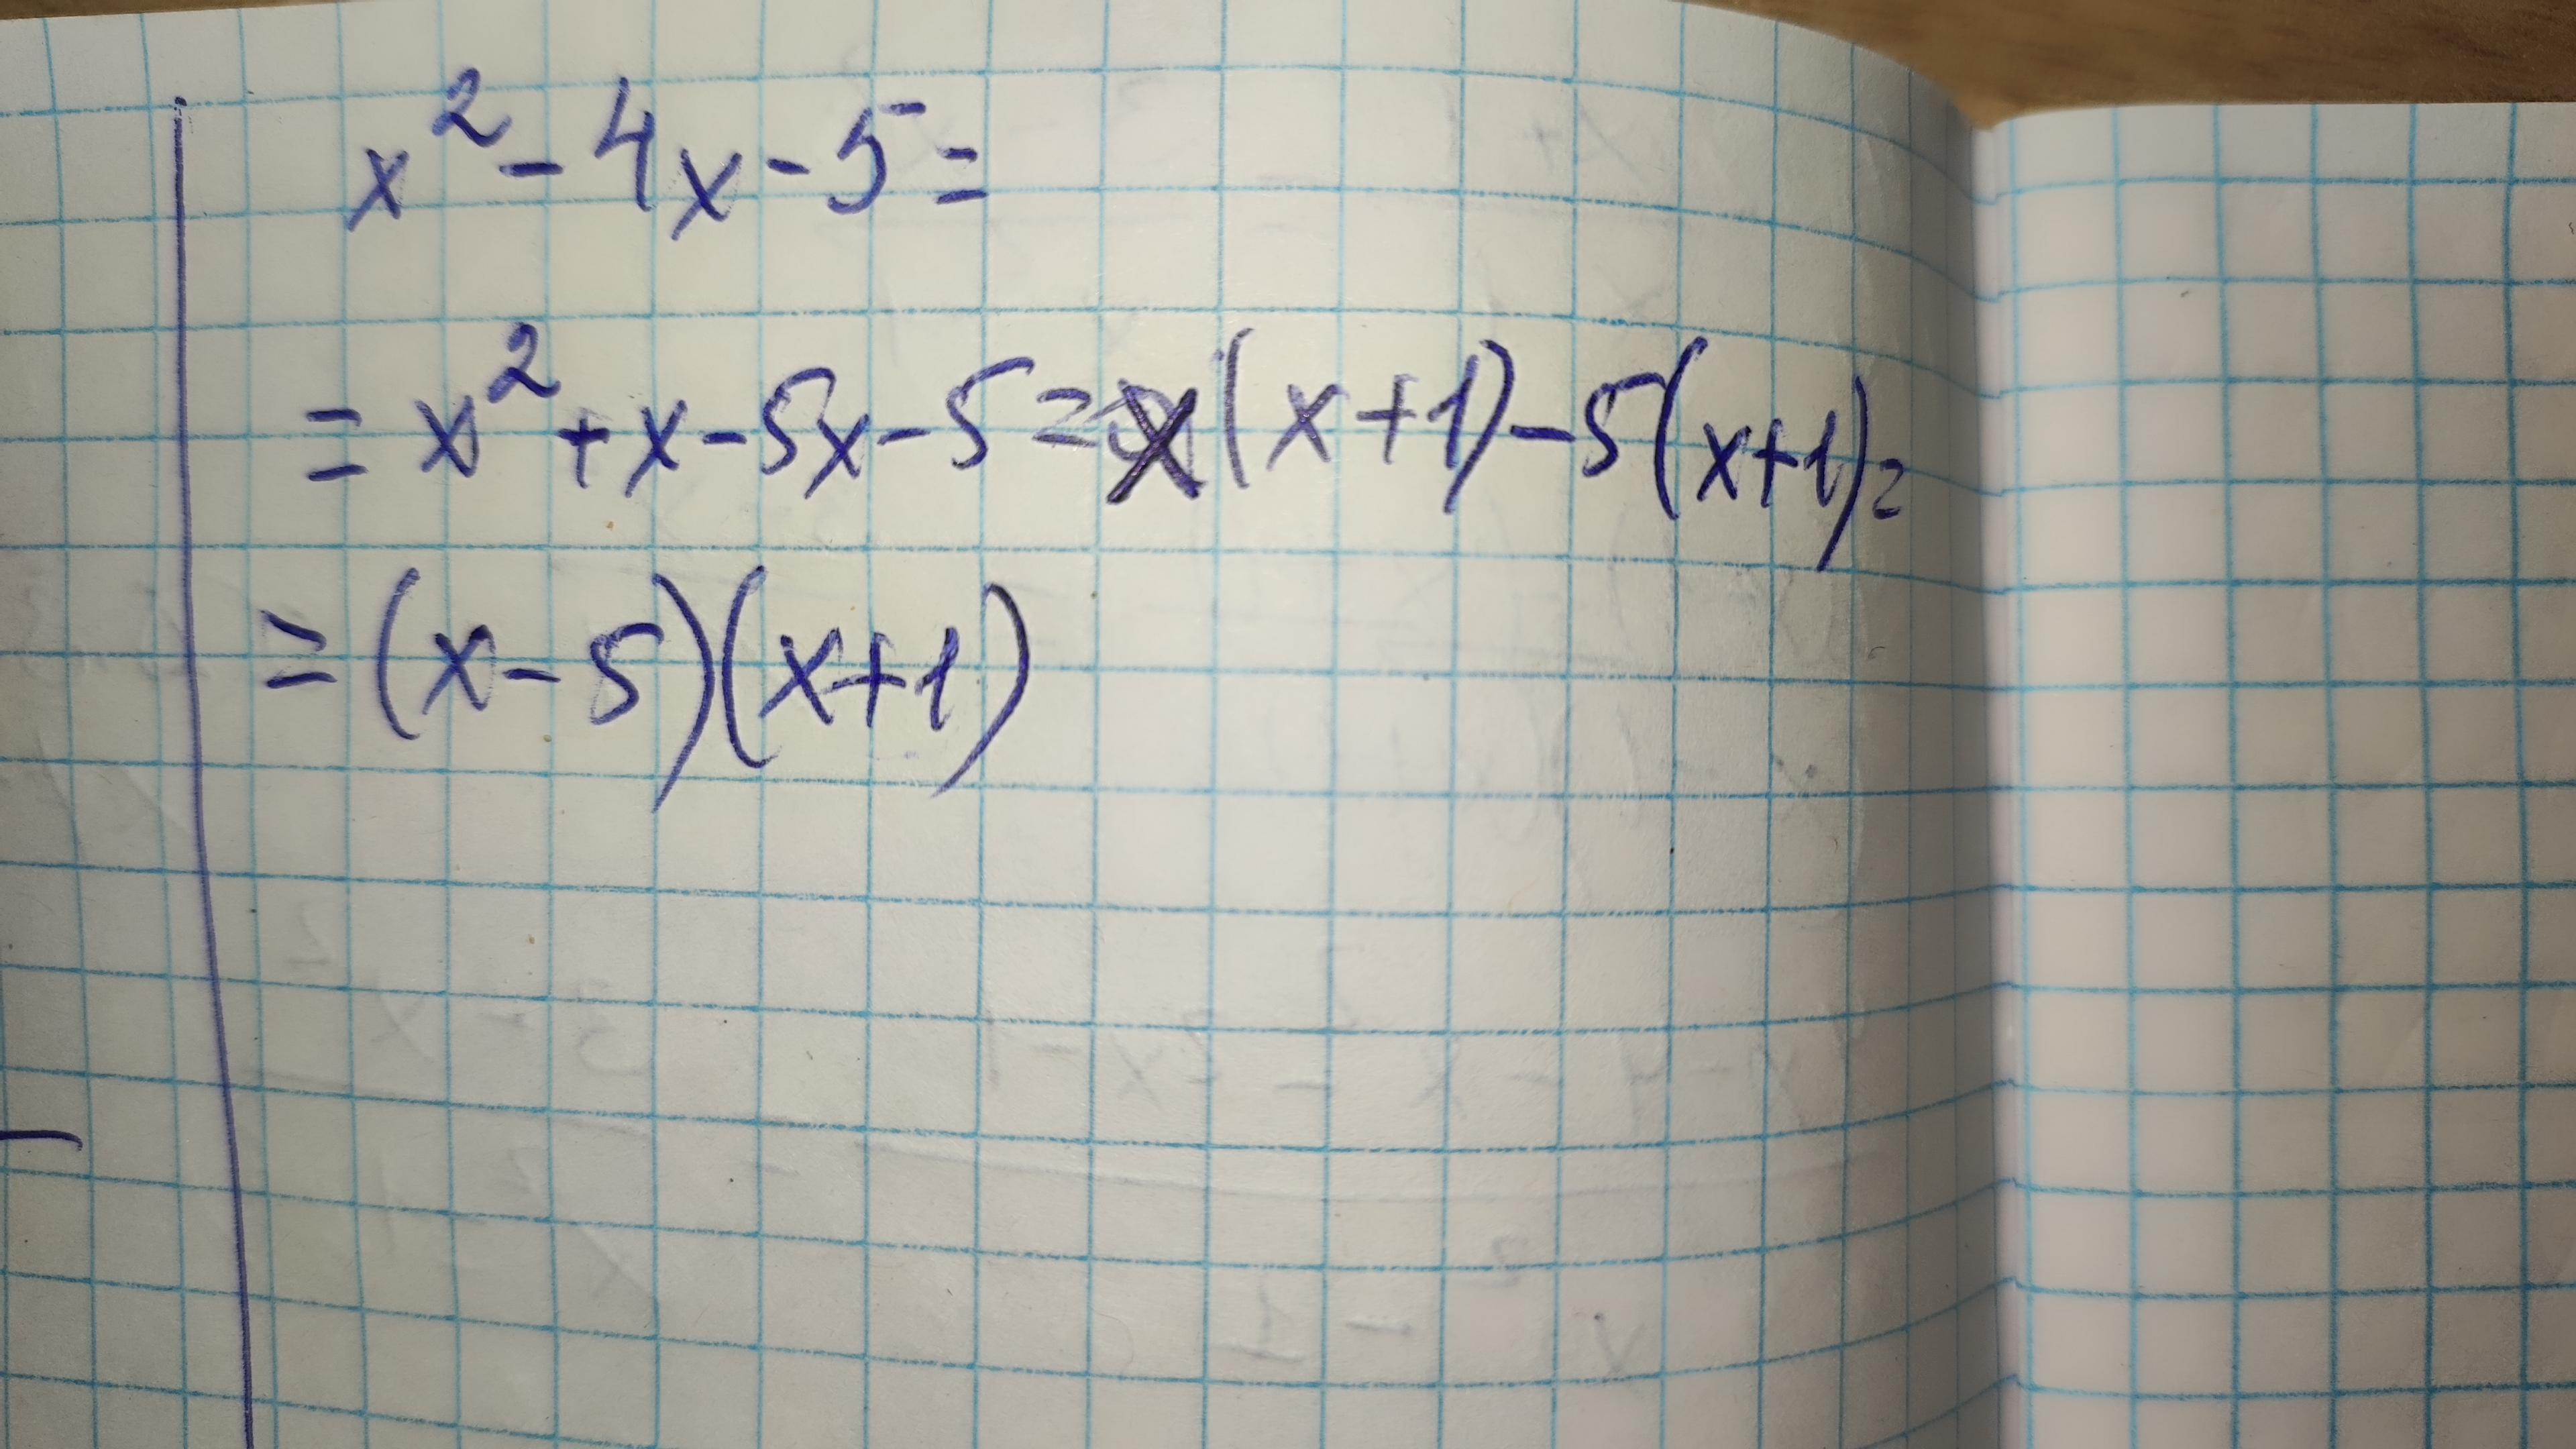 x² - 4x - 5 =
= x² + x - 5x - 5 = x(x+1) - 5(x+1) =
= (x - 5)(x+1)